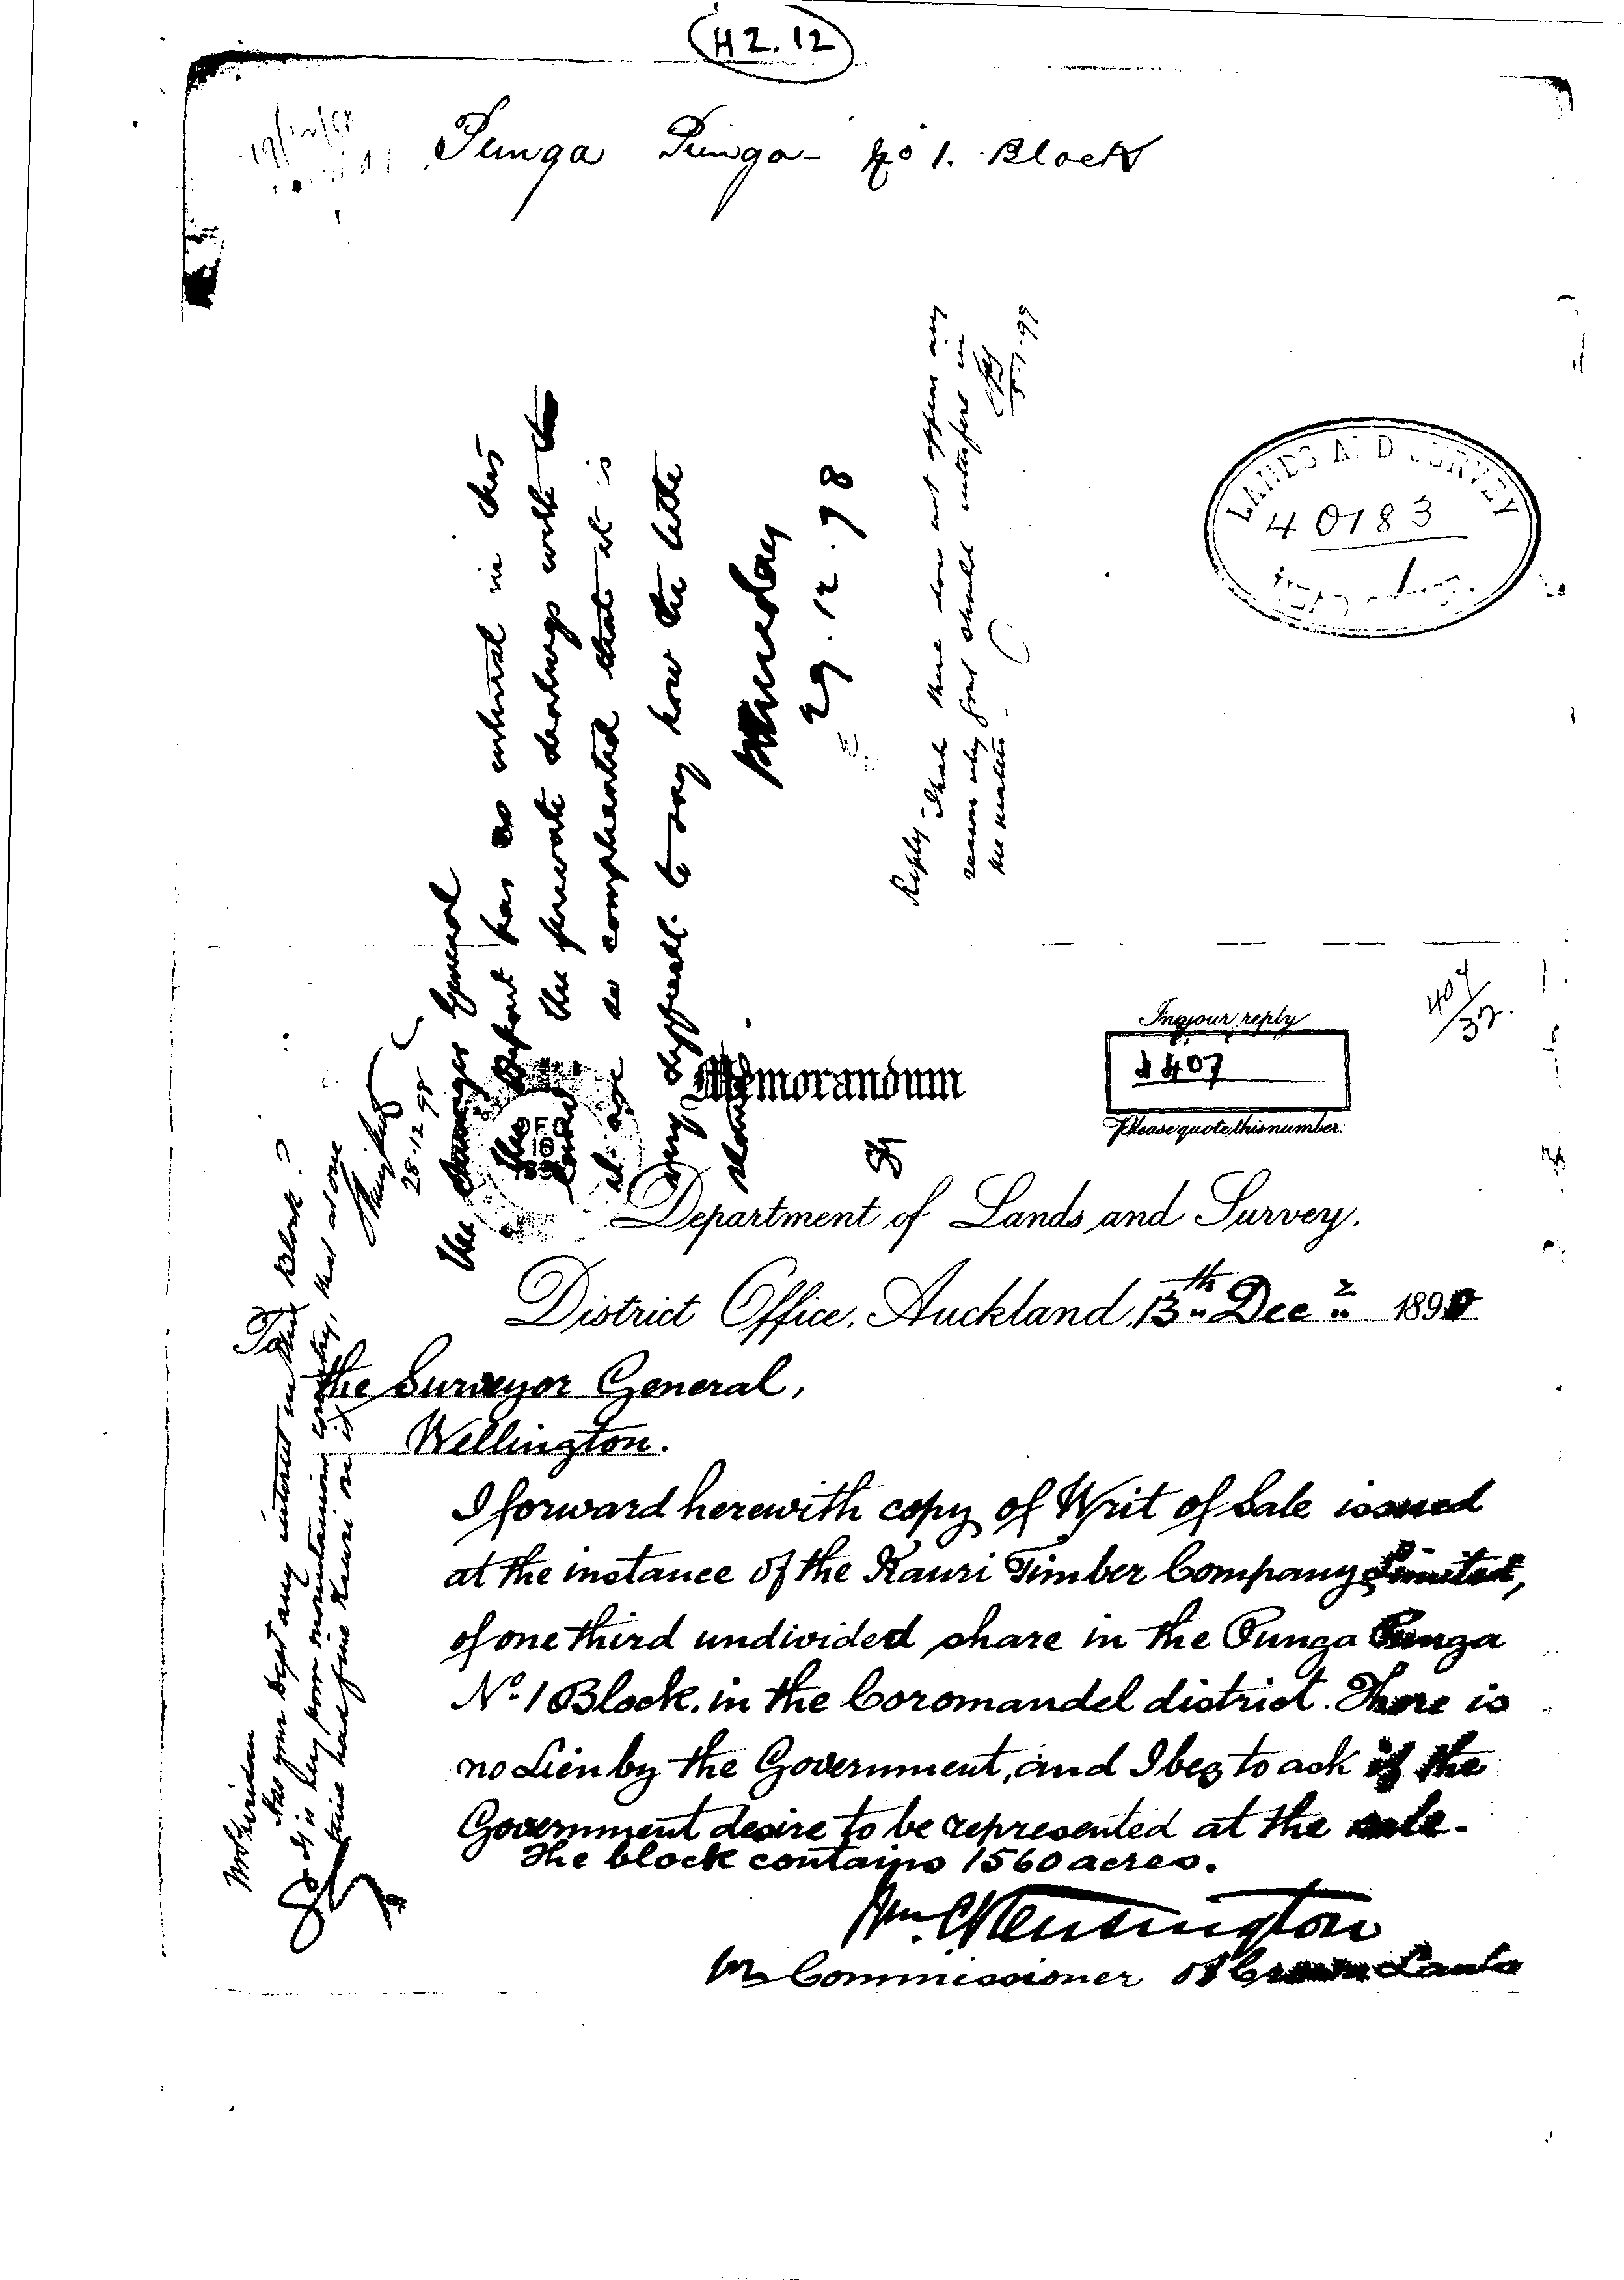 H2.12
Punga Punga - No 1. Block
LANDS AND SURVEY
40183
In your reply
d 407
Please quote this number.
407/37.
Memorandum
Department of Lands and Survey.
District Office, Auckland, 13th Decr 1898
To
the Surveyor General,
Wellington.
I forward herewith copy of Writ of Sale issued
at the instance of the Kauri Timber Company Limited,
of one third undivided share in the Punga Punga
No. 1 Block, in the Coromandel district. There is
no Lien by the Government, and I beg to ask if the
Government desire to be represented at the sale.
The block contains 1560 acres.
Wm. C Kensington
Commissioner of Crown Lands
Mr Sheridan
Has your Dept any interest in this Block?
It is very poor mountainous country, that at one
time had fine Kauri on it
28.12.98
The Surveyor General
This Depart has no interest in this
the private dealings with
so complicated that it is
very difficult to say how the title
stands.
P Sheridan
29.12.98
Reply that there does not appear any
reason why Govt should interfere in
the matter.